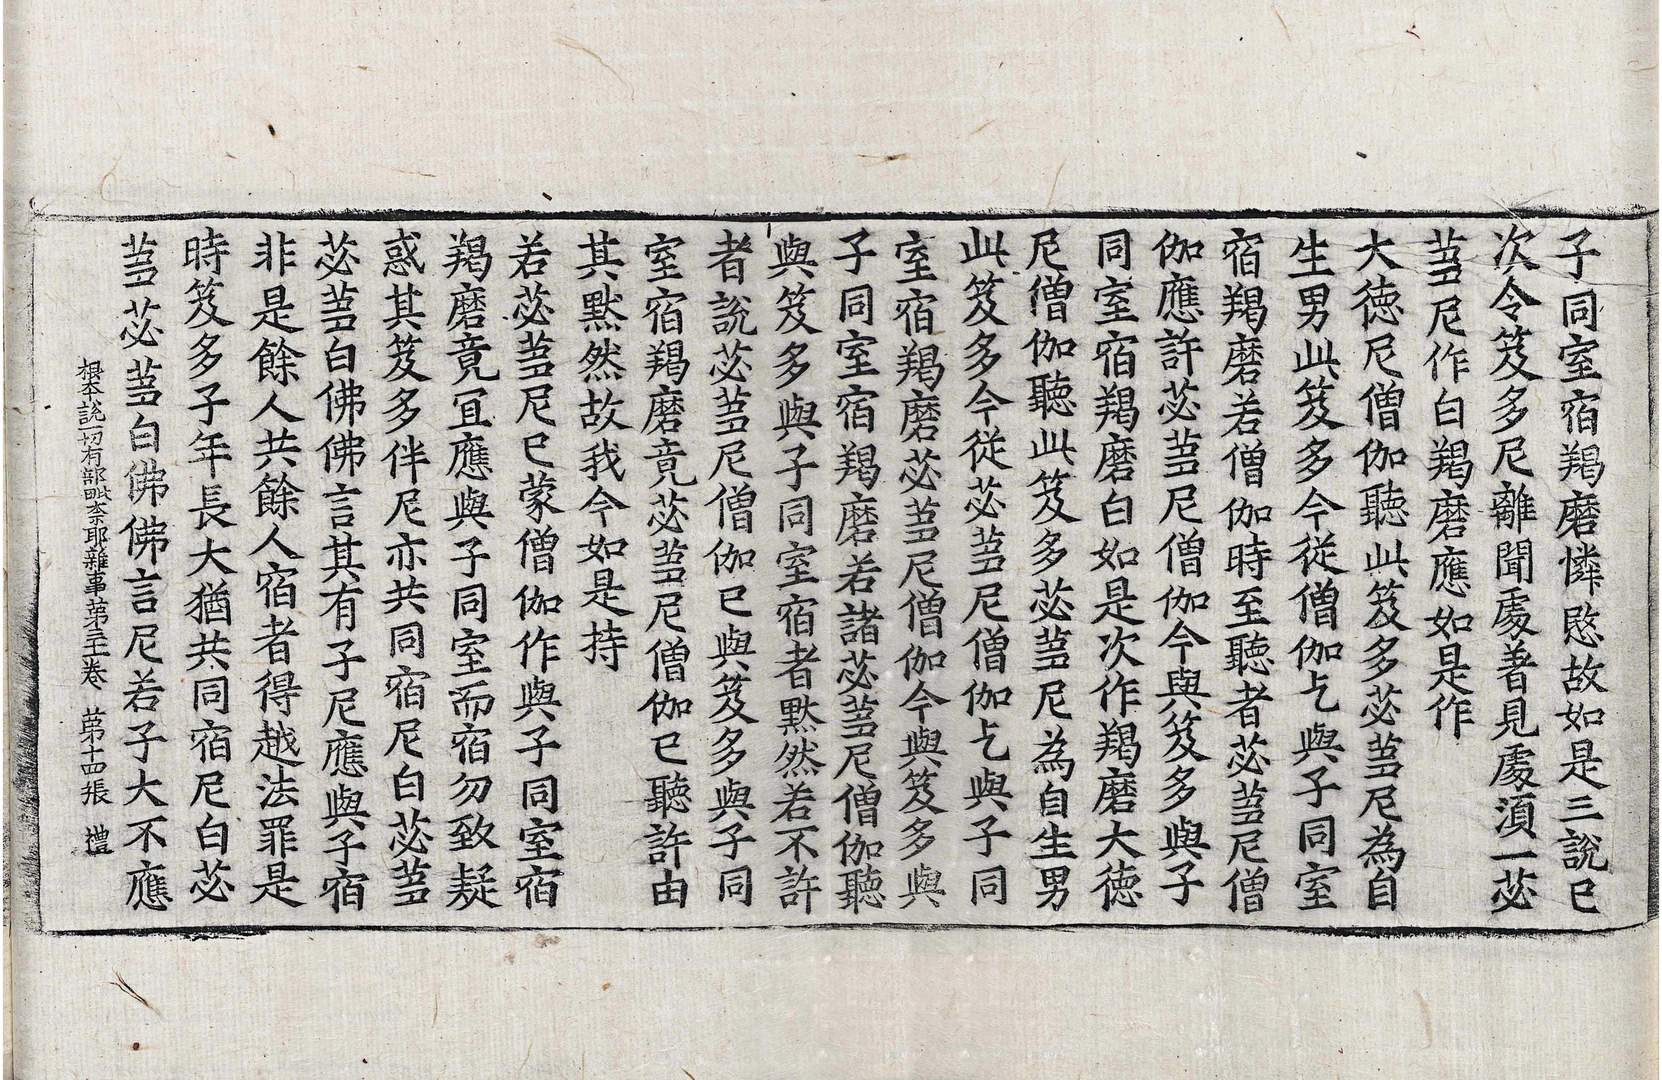 子同室宿羯磨憐愍故如是三說已
次令笈多尼離聞處著見處湏一苾
蒭尼作白羯磨應如是作
大德尼僧伽聽此笈多苾蒭尼為自
生男此笈多今從僧伽乞與子同室
宿羯磨若僧伽時至聽者苾蒭尼僧
伽應許苾蒭尼僧伽今與笈多與子
同室宿羯磨白如是次作羯磨大德
尼僧伽聽此笈多苾蒭尼為自生男
此笈多今從苾蒭尼僧伽乞與子同
室宿羯磨苾蒭尼僧伽今與笈多與
子同室宿羯磨若諸苾蒭尼僧伽聽
與笈多與子同室宿者默然若不許
者說苾蒭尼僧伽已與笈多與子同
室宿羯磨竟苾蒭尼僧伽已聽許由
其默然故我今如是持
若苾蒭尼已蒙僧伽作與子同室宿
羯磨竟冝應與子同室而宿勿致疑
惑其笈多伴尼亦共同宿尼白苾蒭
苾蒭白佛佛言其有子尼應與子宿
非是餘人共餘人宿者得越法罪是
時笈多子年長大猶共同宿尼白苾
蒭苾蒭白佛佛言尼若子大不應
根本說一切有部毗奈耶雜事第三十二卷 第十四張 禮